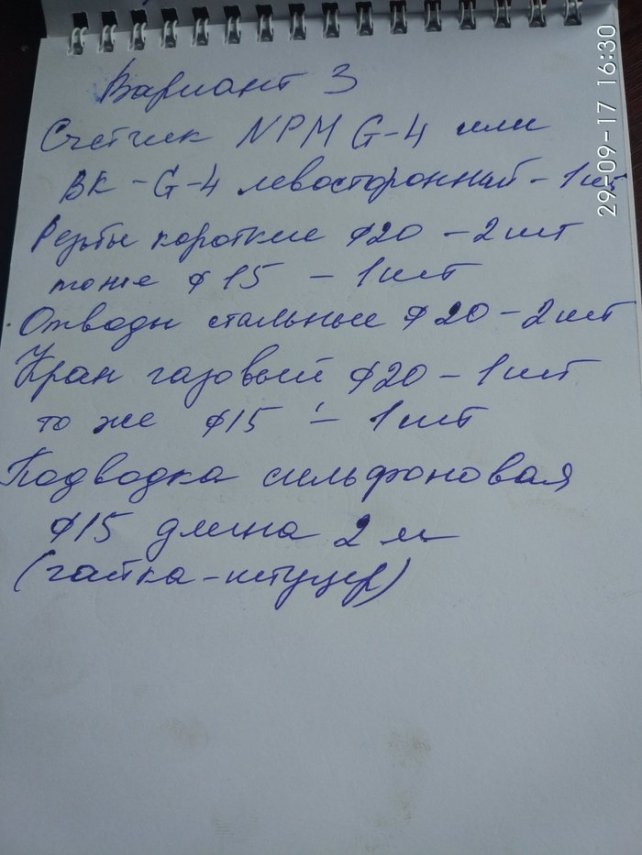 Вариант 3
Счетчик NPM G-4 или
ВК-G-4 левосторонний - 1шт
Резьбы короткие ф20 - 2шт
тоже ф15 - 1шт
Отводы стальные ф20 - 2шт
Кран газовый ф20 - 1шт
то же ф15 - 1шт
Подводка сильфоновая
ф15 длина 2м
(гайка-штуцер)
29-09-17 16:30